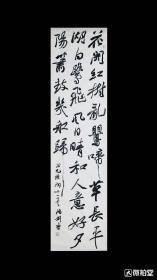 花開紅樹亂鶯啼草長平
湖白鷺飛風日晴和人意好夕
陽簫鼓幾船歸
微拍堂